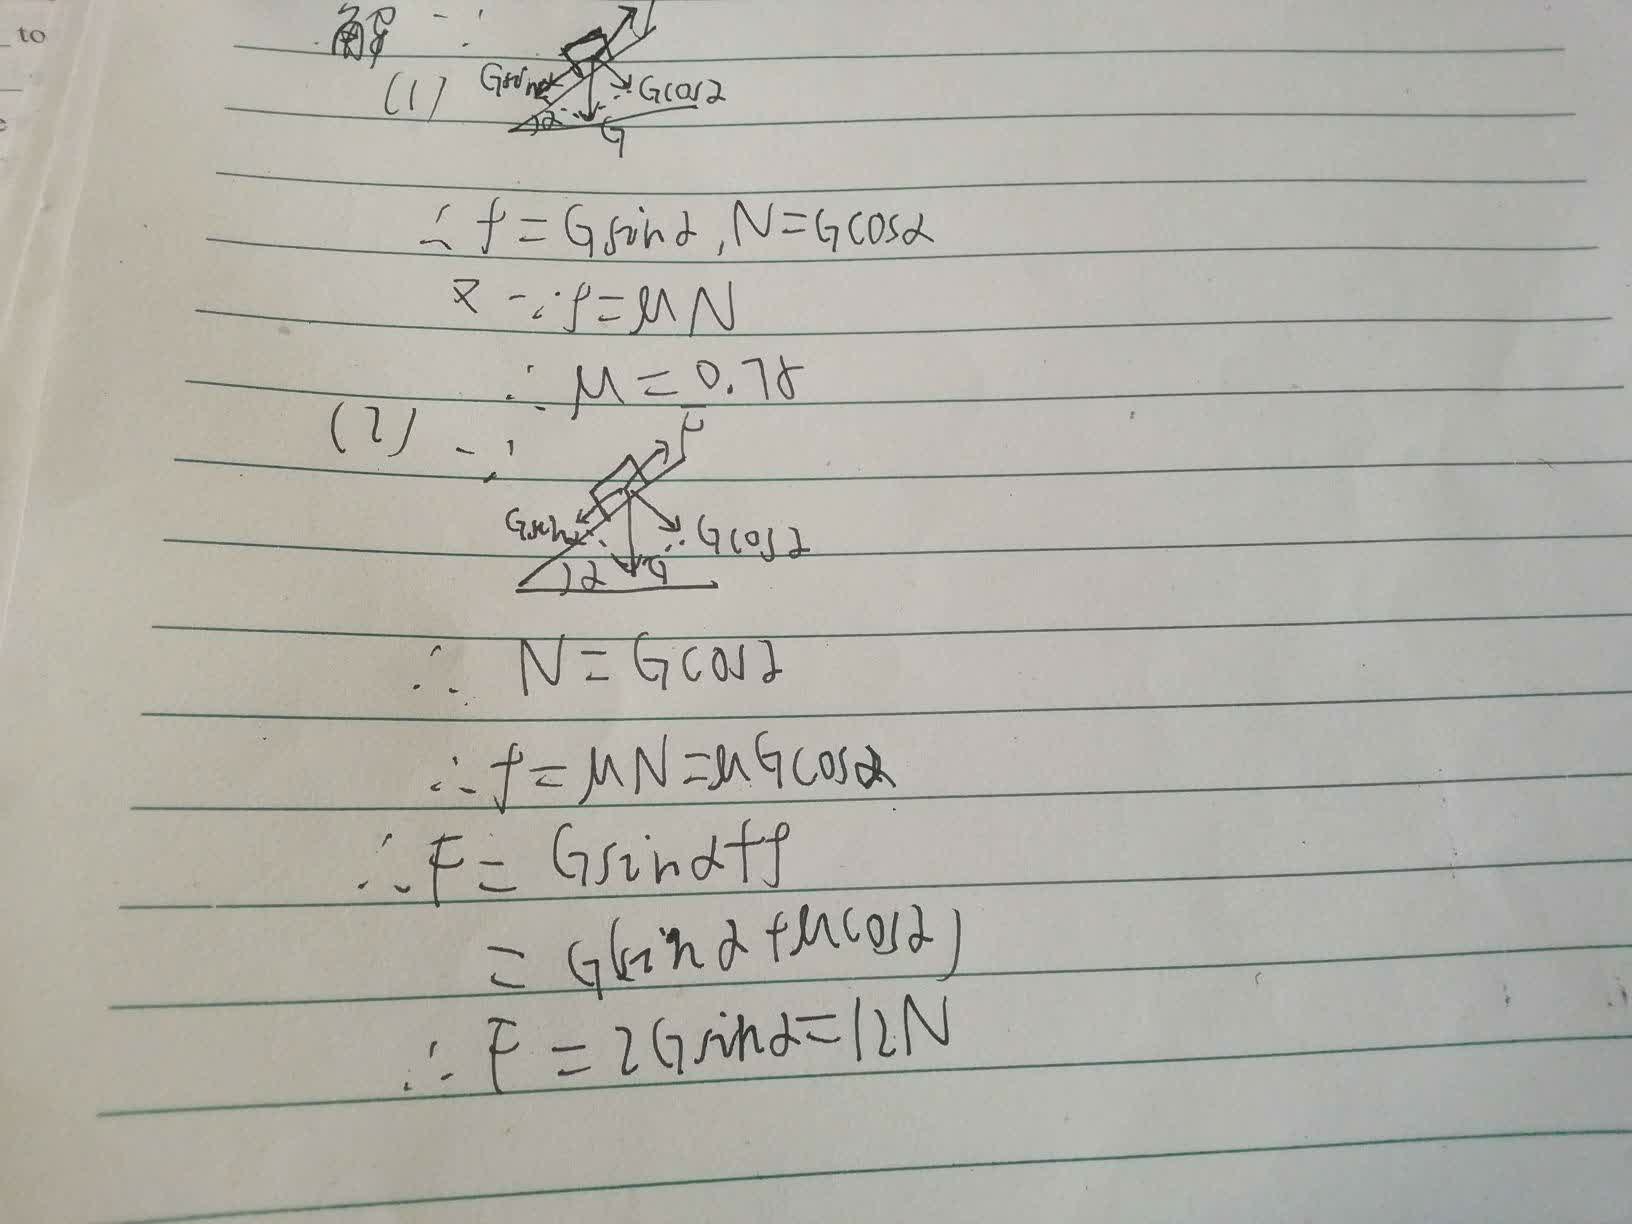 to
解 ∵
f
(1) Gsinα Gcosα
α
G
∴ f=Gsinα, N=Gcosα
又 ∵ f=μN
∴ μ=0.75
(2) ∵
F
Gsinα Gcosα
α G
∴ N=Gcosα
∴ f=μN=μGcosα
∴ F=Gsinα+f
=G(sinα+μcosα)
∴ F=2Gsinα=12N